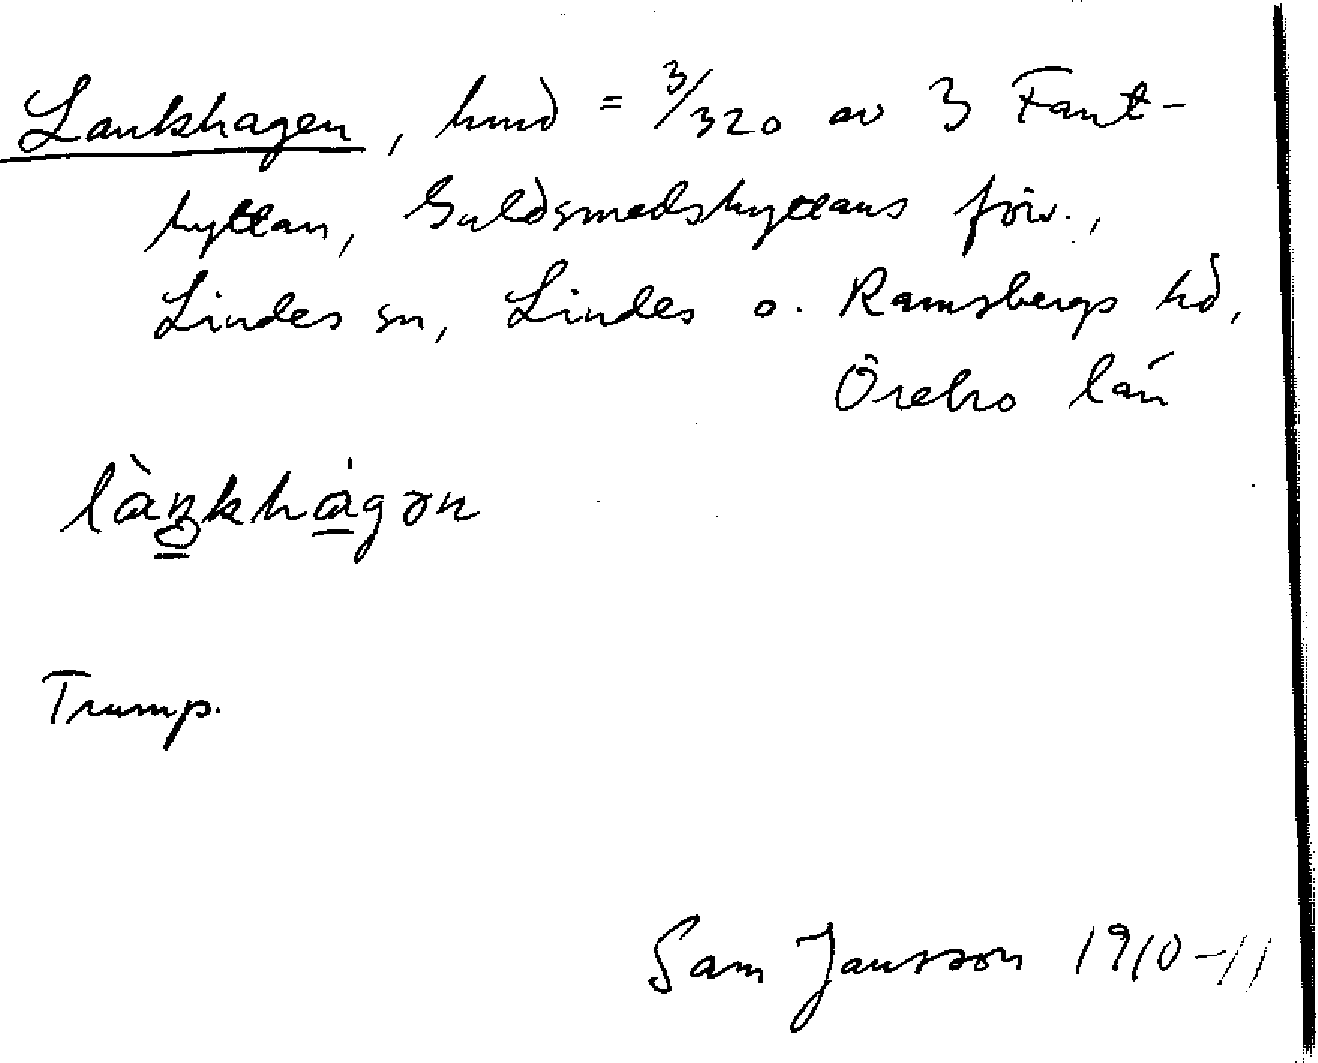 Lankhagen, hmd = 3/320 av 3 Fant-
hyttan, Guldsmedshyttans förv.,
Lindes sn, Lindes o. Ramsbergs hd,
Örebro län
làŋkhágən
Trump.
Sam Jansson 1910-11